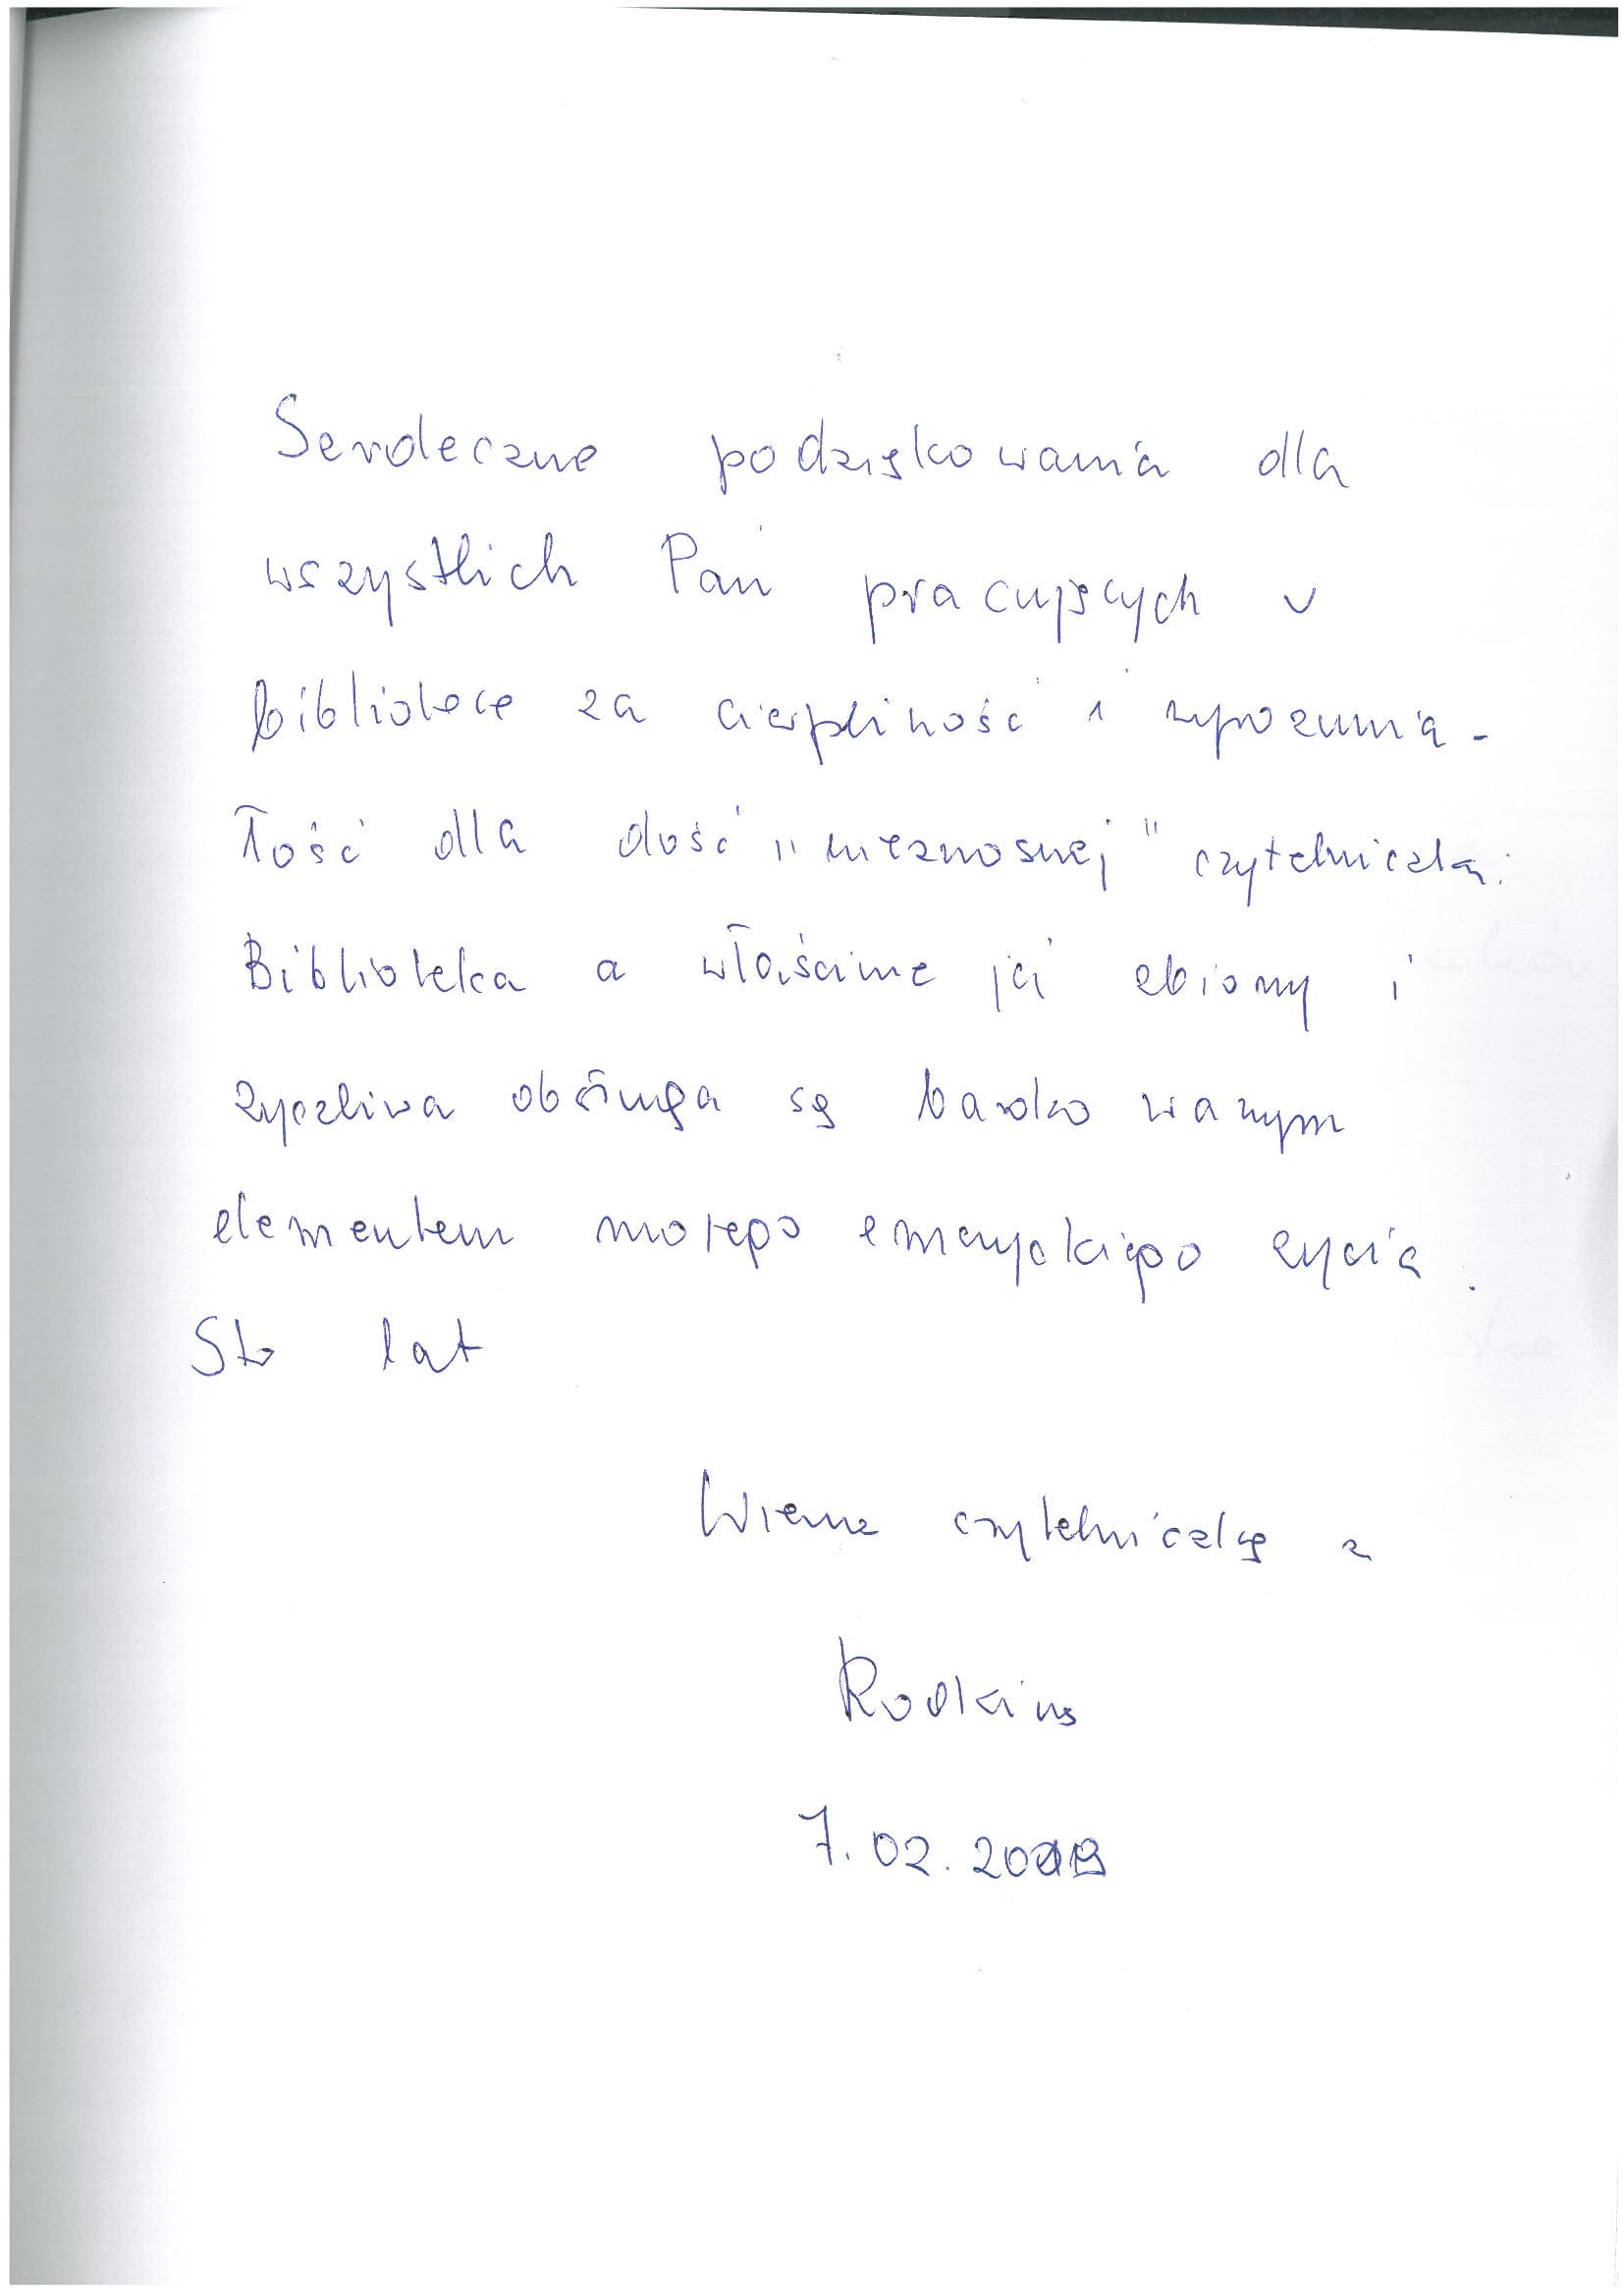 Serdeczne podziękowania dla
wszystkich Pań pracujących w
bibliotece za cierpliwość i wyrozumia-
łość dla dość "nieznośnej" czytelniczki.
Biblioteka a właściwie jej zbiory i
życzliwa obsługa są bardzo ważnym
elementem mojego emeryckiego życia.
Sto lat
Wierna czytelniczka z
7.02.2019